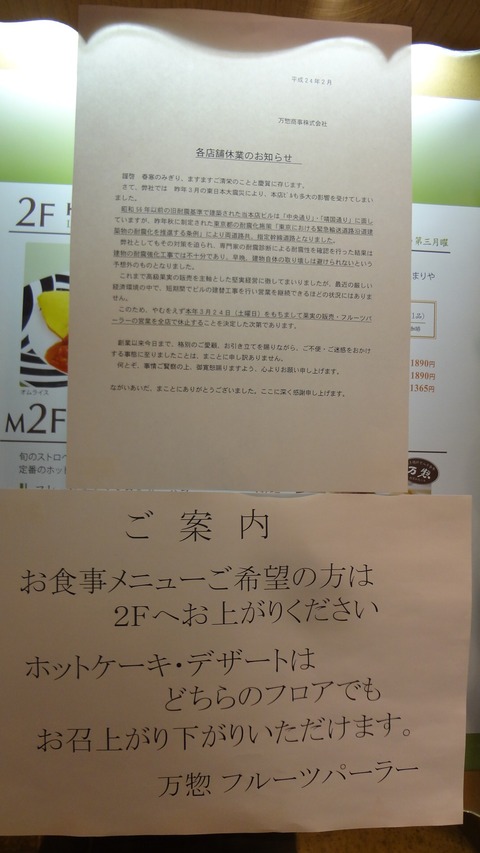 平成24年2月
万惣商事株式会社
各店舗休業のお知らせ
謹啓　春寒のみぎり、ますますご清栄のことと慶賀に存じます。
さて、弊社では　昨年3月の東日本大震災により、本店ビルも多大の影響を受けてしまい
ました。
昭和56年以前の旧耐震基準で建築された当本店ビルは「中央通り」・「靖国通り」に面し
ていますが、昨年秋に制定された東京都の耐震化施策「東京における緊急輸送道路沿道建
築物の耐震化を推進する条例」により両道路共、指定幹線道路となりました。
弊社としてもその対策を迫られ、専門家の耐震診断による耐震性を確認を行った結果は
建物の耐震強化工事では不十分であり、早晩、建物自体の取り壊しは避けられないという
予想外のものとなりました。
これまで高級果実の販売を主軸とした堅実経営に徹してまいりましたが、最近の厳しい
経済環境の中で、短期間でビルの建替工事を行い営業を継続できるほどの状況にはありま
せん。
このため、やむをえず本年3月24日（土曜日）をもちまして果実の販売・フルーツパ
ーラーの営業を全店で休止することを決定した次第であります。
創業以来今日まで、格別のご愛顧、お引き立てを賜りながら、ご不便・ご迷惑をおかけ
する事態に至りましたことは、まことに申し訳ありません。
何とぞ、事情ご賢察の上、御寛恕賜りますよう、心よりお願い申し上げます。
ながいあいだ、まことにありがとうございました。ここに深く感謝申し上げます。
2F
第三月曜
1890円
1890円
1365円
オムライス
M2F
旬のストロベ
定番のホット
万惣
ご案内
お食事メニューご希望の方は
2Fへお上がりください
ホットケーキ・デザートは
どちらのフロアでも
お召上がり下がりいただけます。
万惣 フルーツパーラー